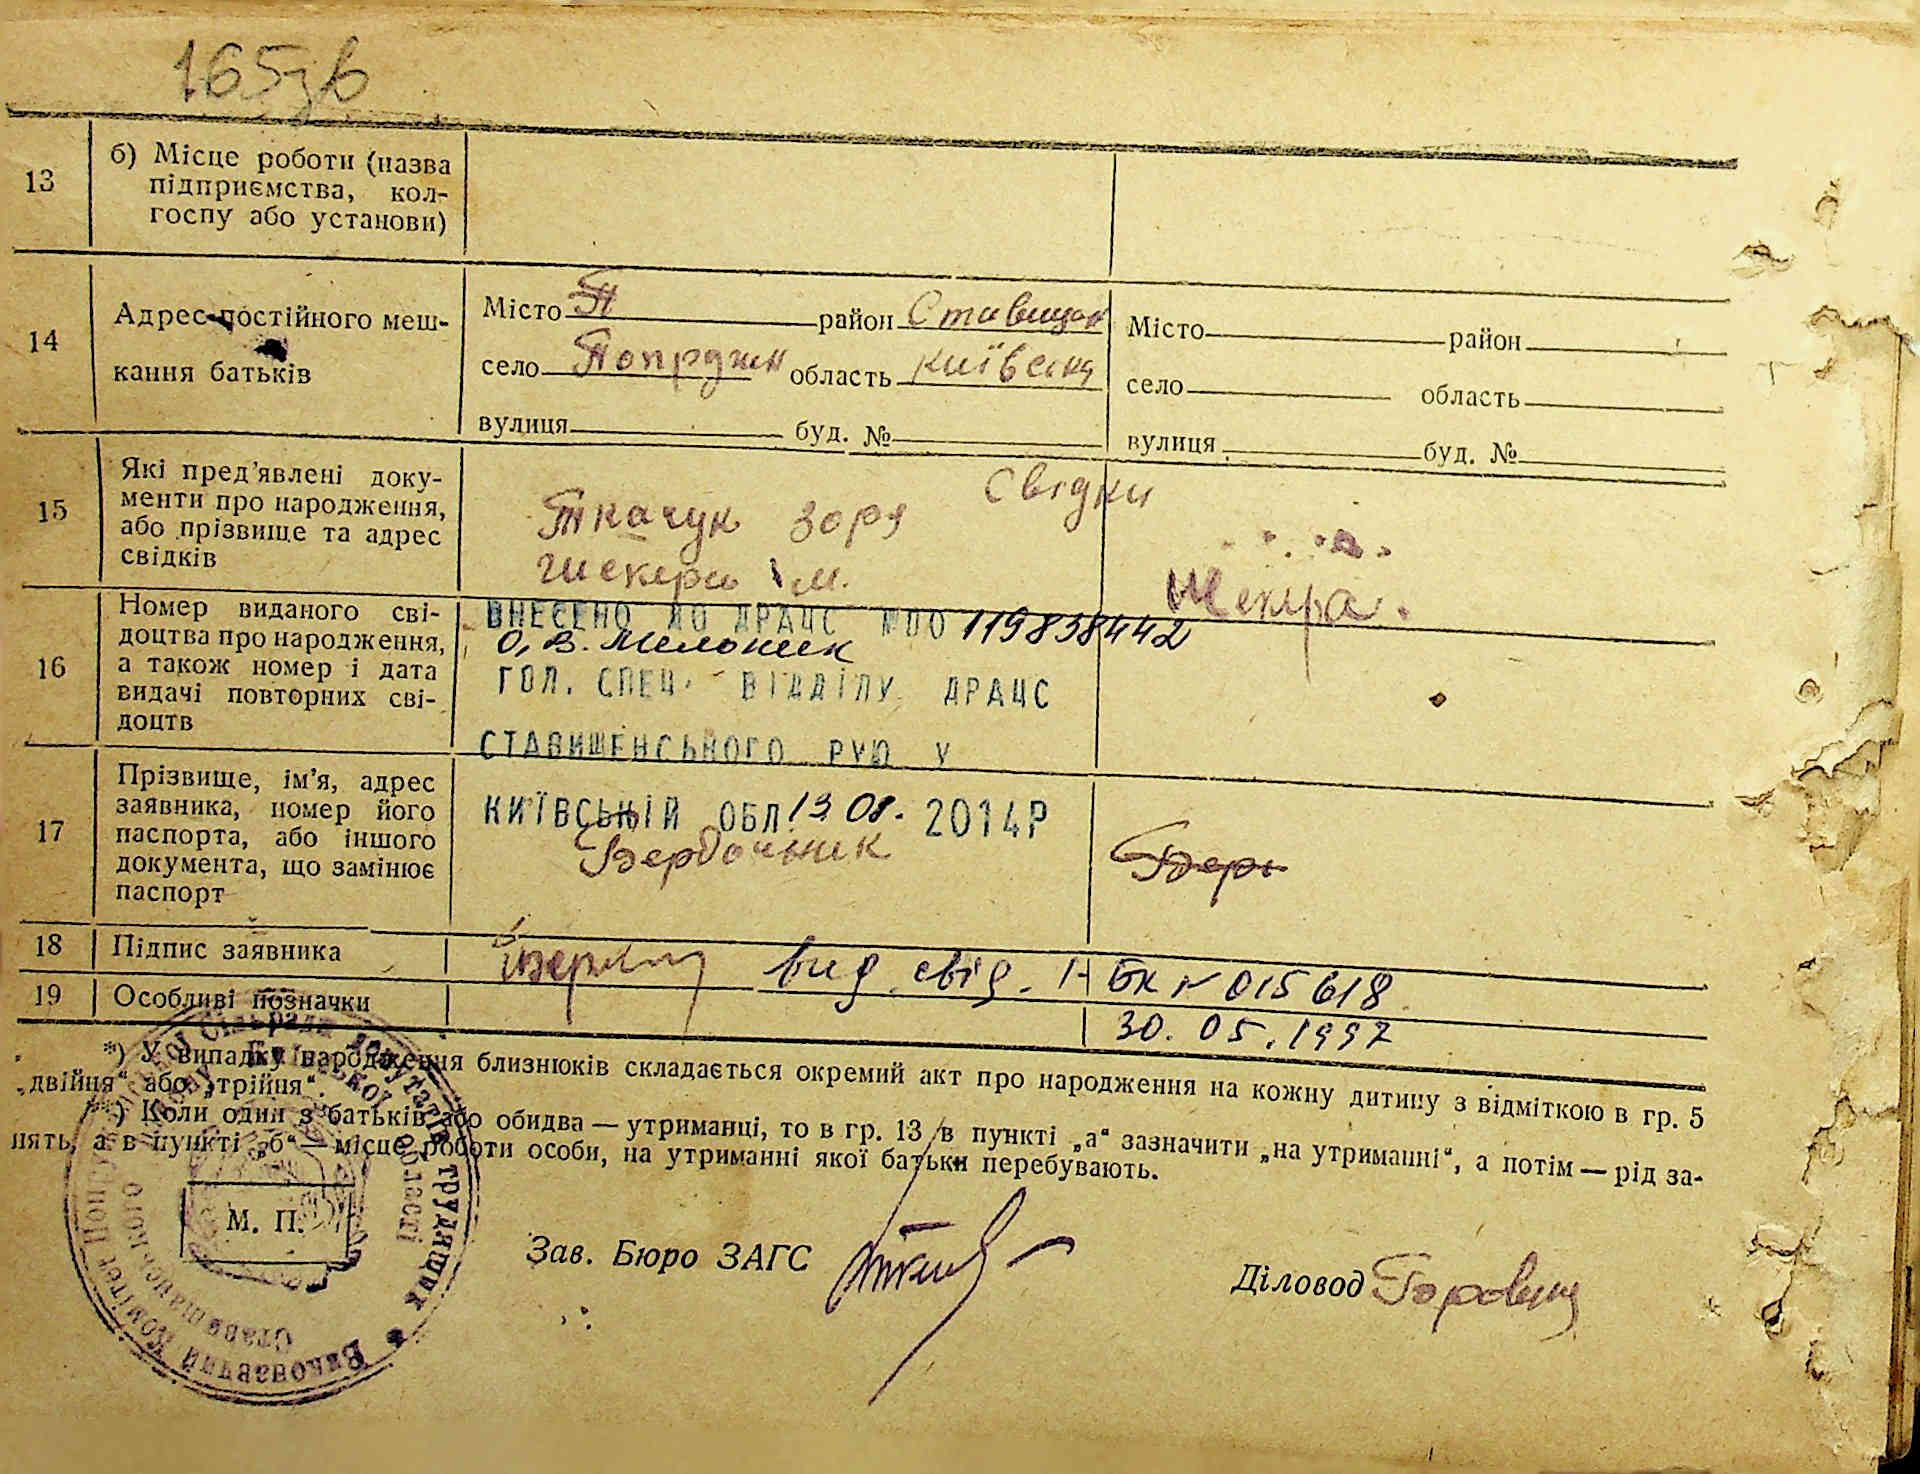 165зв
13
б) Місце роботи (назва
підприємства, кол-
госпу або установи)
14
Адрес постійного меш-
кання батьків
Місто П район Ставищан
село Попружн область Київська
вулиця буд. №
Місто район
село область
вулиця буд. №
15
Які пред’явлені доку-
менти про народження,
або прізвище та адрес
свідків
Свідки
Ткачук Зоря
М.
16
Номер виданого сві-
доцтва про народження,
а також номер і дата
видачі повторних сві-
доцтв
ВНЕСЕНО ДО ДРАЦС №ПО 119838442
О.В. Мельник
ГОЛ. СПЕЦ. ВІДДІЛУ ДРАЦС
СТАВИЩЕНСЬКОГО РУЮ У
КИЇВСЬКІЙ ОБЛ. 13.08. 2014Р
17
Прізвище, ім’я, адрес
заявника, номер його
паспорта, або іншого
документа, що замінює
паспорт
18
Підпис заявника
вид. свід. І-БК № 015618
19
Особливі позначки
30.05.1997
*) У випадку народження близнюків складається окремий акт про народження на кожну дитину з відміткою в гр. 5
„двійня“ або „трійня“.
**) Коли один з батьків або обидва — утриманці, то в гр. 13 в пункті „а“ зазначити „на утриманні“, а потім — рід за-
нять, а в пункті „б“ — місце роботи особи, на утриманні якої батьки перебувають.
М. П.
Зав. Бюро ЗАГС
Діловод
Виконавчий Комітет сільради депутатів трудящих
Ставищанського області